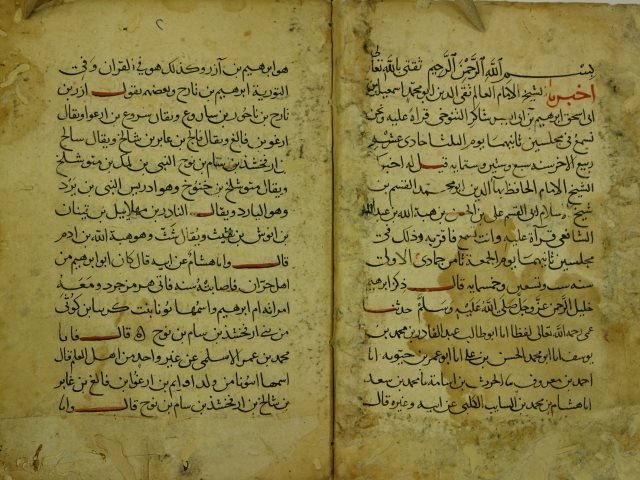 بسم الله الرحمن الرحيم ثقتي بالله تعالى
اخبرنا الشيخ الامام العالم تقي الدين ابو محمد اسمعيل بن
ابي اسحق ابرهيم بن ابي اليسر شاكر التنوخي قراة عليه ونحن
نسمع في مجلسين ثانيهما يوم الثلثا حادي عشر
ربيع الاخر سنة سبع وستين وستمايه قيل له اخبرنا
الشيخ الامام الحافظ بها الدين ابو محمد القسم بن
شيخ الاسلام ابي القسم علي بن الحسن بن هبة الله بن عبد الله
الشافعي قراة عليه وانت تسمع فاقر به وذلك في
مجلسين ثانيهما يوم الجمعة ثامن جمادى الاولى
سنة ست وتسعين وخمسمايه قال ذكر ابرهيم
خليل الرحمن عز وجل صلى الله عليه وسلم حدثنا
عمي رحمه الله تعالى لفظا انا ابو طالب عبد القادر بن محمد بن
يوسف انا ابو محمد الحسن بن علي انا ابو عمر بن حيويه انا
احمد بن معروف نا الحرث بن ابي اسامة نا محمد بن سعد
انا هشام بن محمد بن السايب الكلبي عن ابيه وغيره قال
٢
هو ابرهيم بن آزر وكذلك هو في القران وفي
التورية ابرهيم بن تارح وبعضهم يقول آزر بن
تارح بن ناحور بن ساروغ ويقال سروغ بن ارغوا ويقال
ارغو بن فالغ ويقال فالخ بن عابر بن شالخ ويقال سالخ
بن ارفخشذ بن سام بن نوح النبي بن لمك بن متوشلخ
ويقال متوشلخ بن خنوخ وهو ادريس النبي بن يرد
وهو اليارد ويقال النادر بن مهلاييل بن قينان
بن انوش بن شيث ويقال شث وهو هبة الله بن ادم
قال وانا هشام عن ابيه قال كان ابو ابرهيم من
اهل حران فاصابته سنة فاتى هرمزجرد ومعه
امراته ام ابرهيم واسمها نونا بنت كرنبا بن كوثى
من بني ارفخشذ بن سام بن نوح قال فانا
محمد بن عمر الاسلمي عن غير واحد من اهل العلم قال
اسمها ابيونا من ولد افرايم بن ارغوا بن فالغ بن عابر
بن شالخ بن ارفخشذ بن سام بن نوح قال وانا